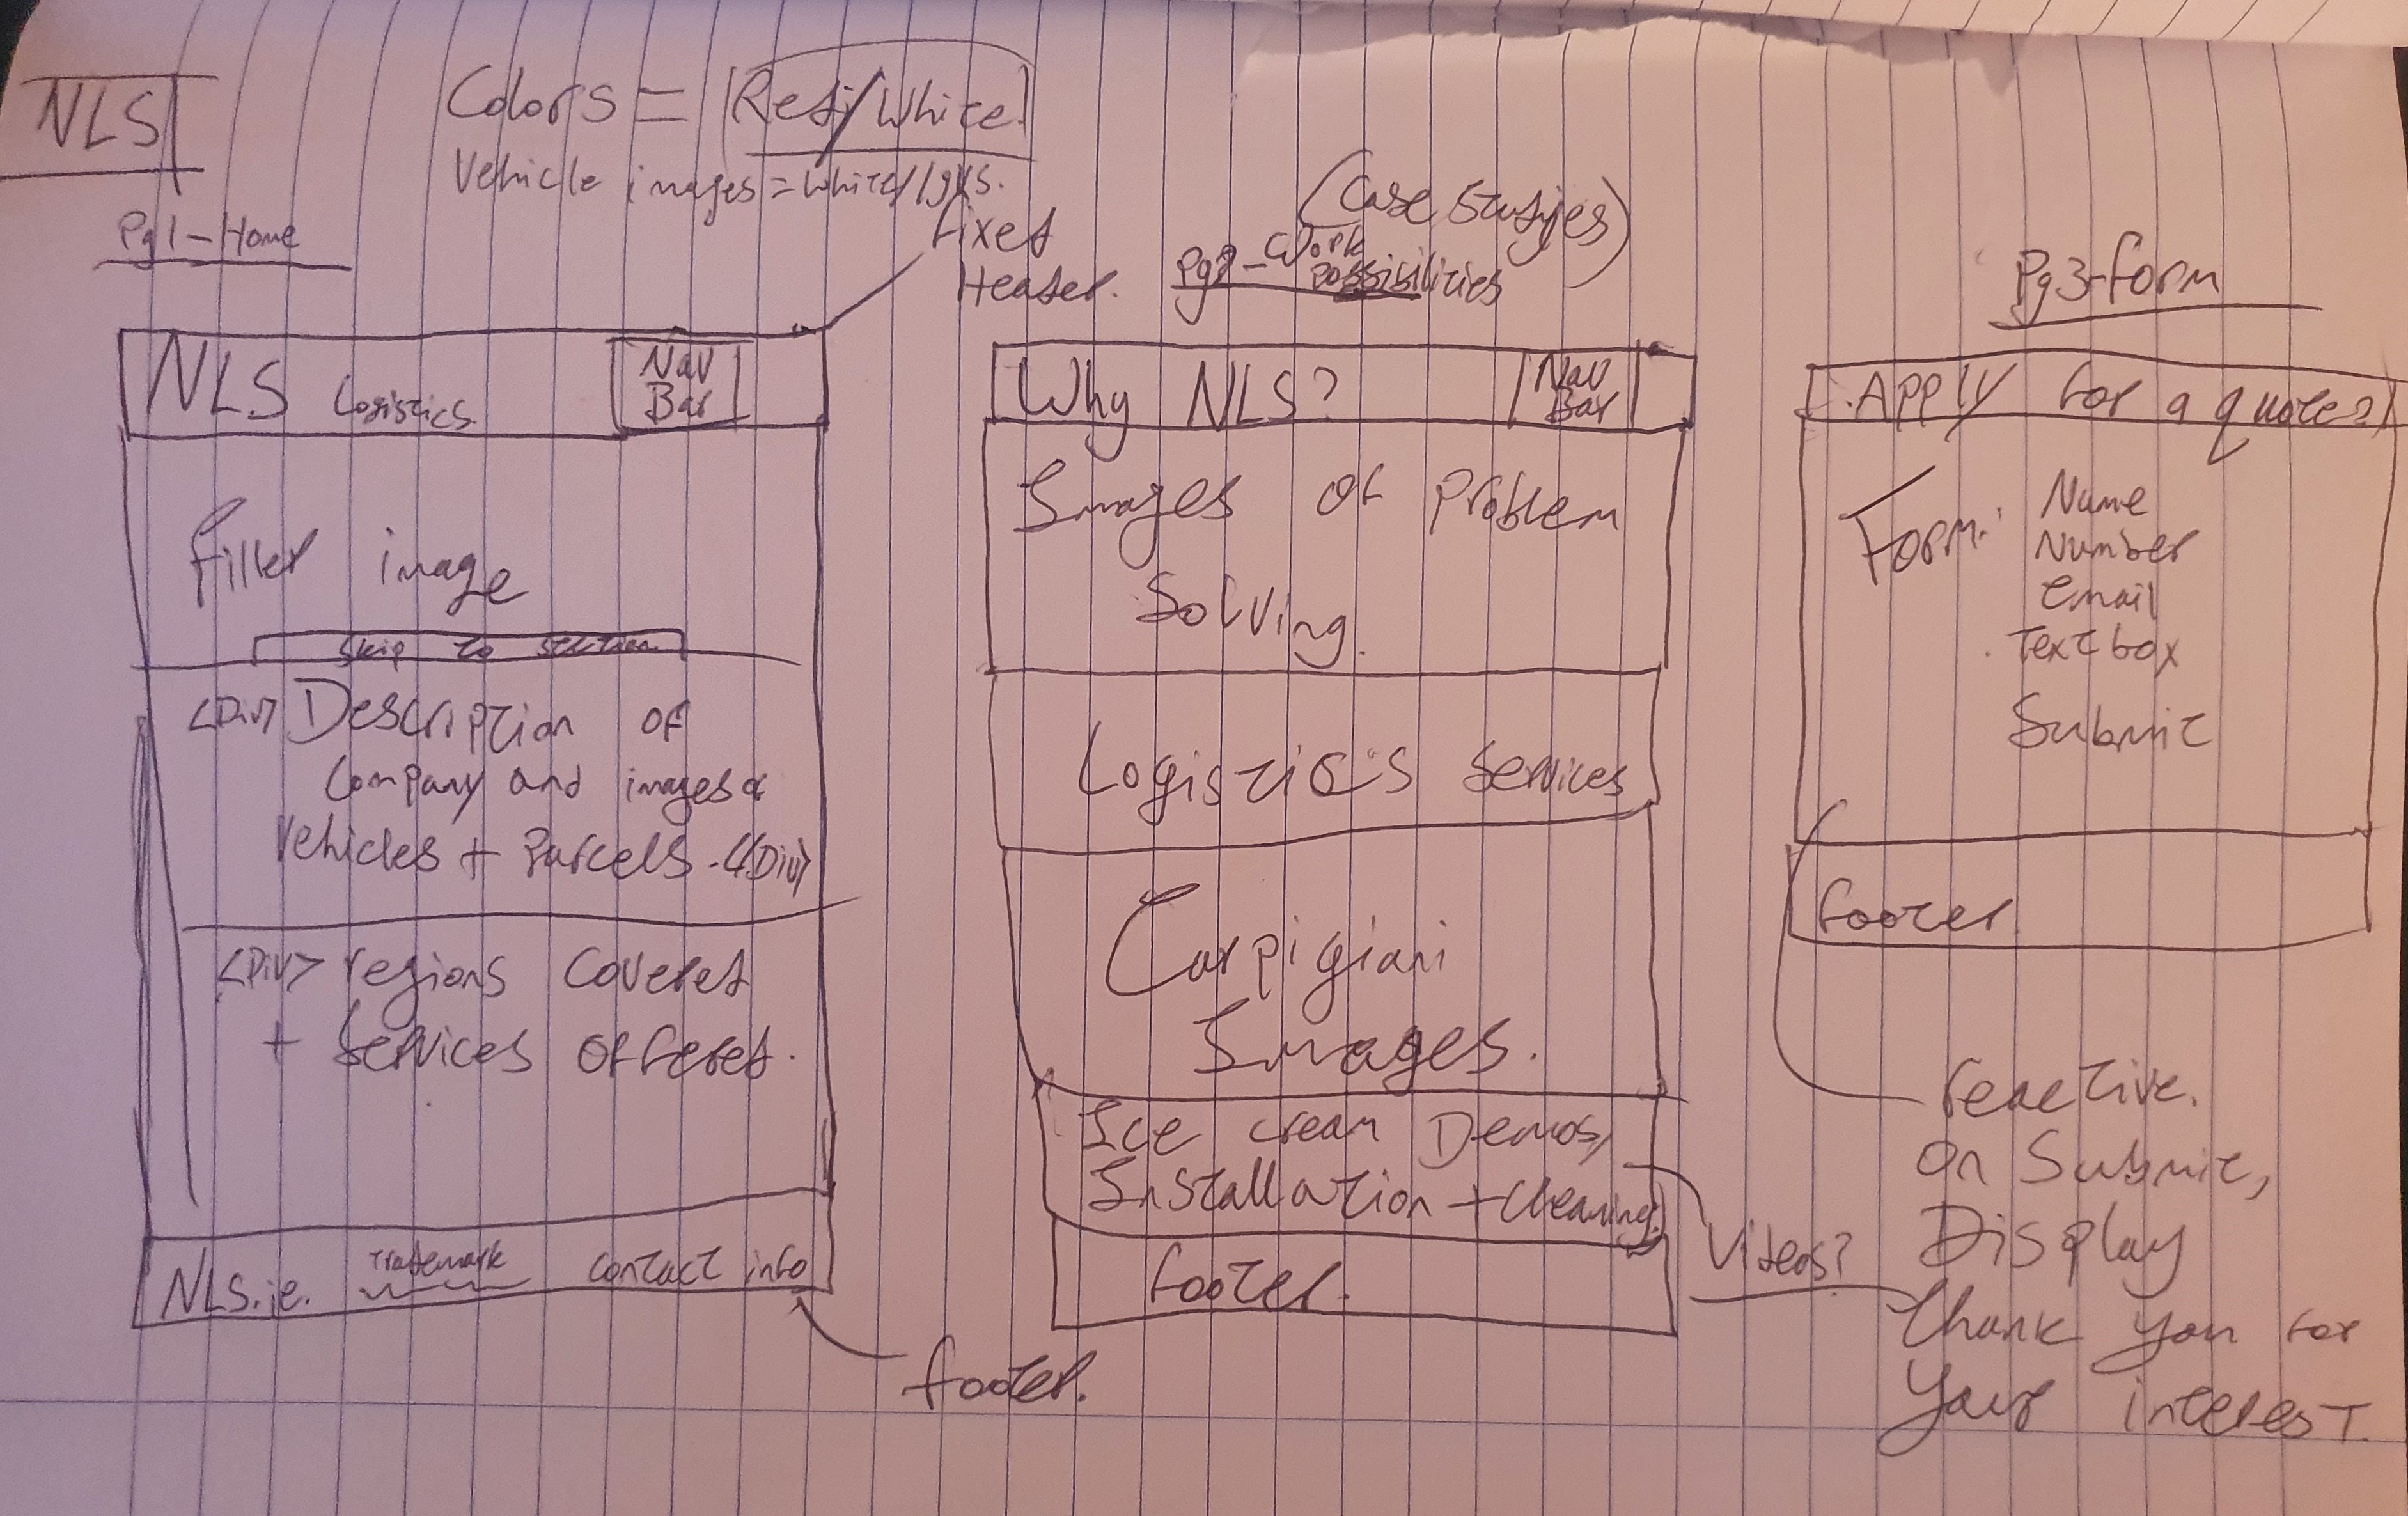 NLS
Colors = Red/White
Vehicle images = white
Pg1 - Home
Fixed
Header.
NLS Logistics
Nav
Bar
Filler image
Skip to section
<Div> Description of
Company and images of
Vehicles + Parcels. </Div>
<Div> regions covered
+ Services offered.
NLS.ie. trademark contact info
footer.
(Case Studies)
Pg2 - Work
possibilities
Why NLS?
Nav
Bar
Images of Problem
Solving.
Logistics Services
Carpigiani
Images.
Ice cream Demos,
Installation + Cleaning.
Videos?
footer.
Pg3 - Form
Apply for a quote?
Form: Name
Number
Email
Text box
Submit
footer
reactive.
On Submit,
Display
Thank you for
your interest.